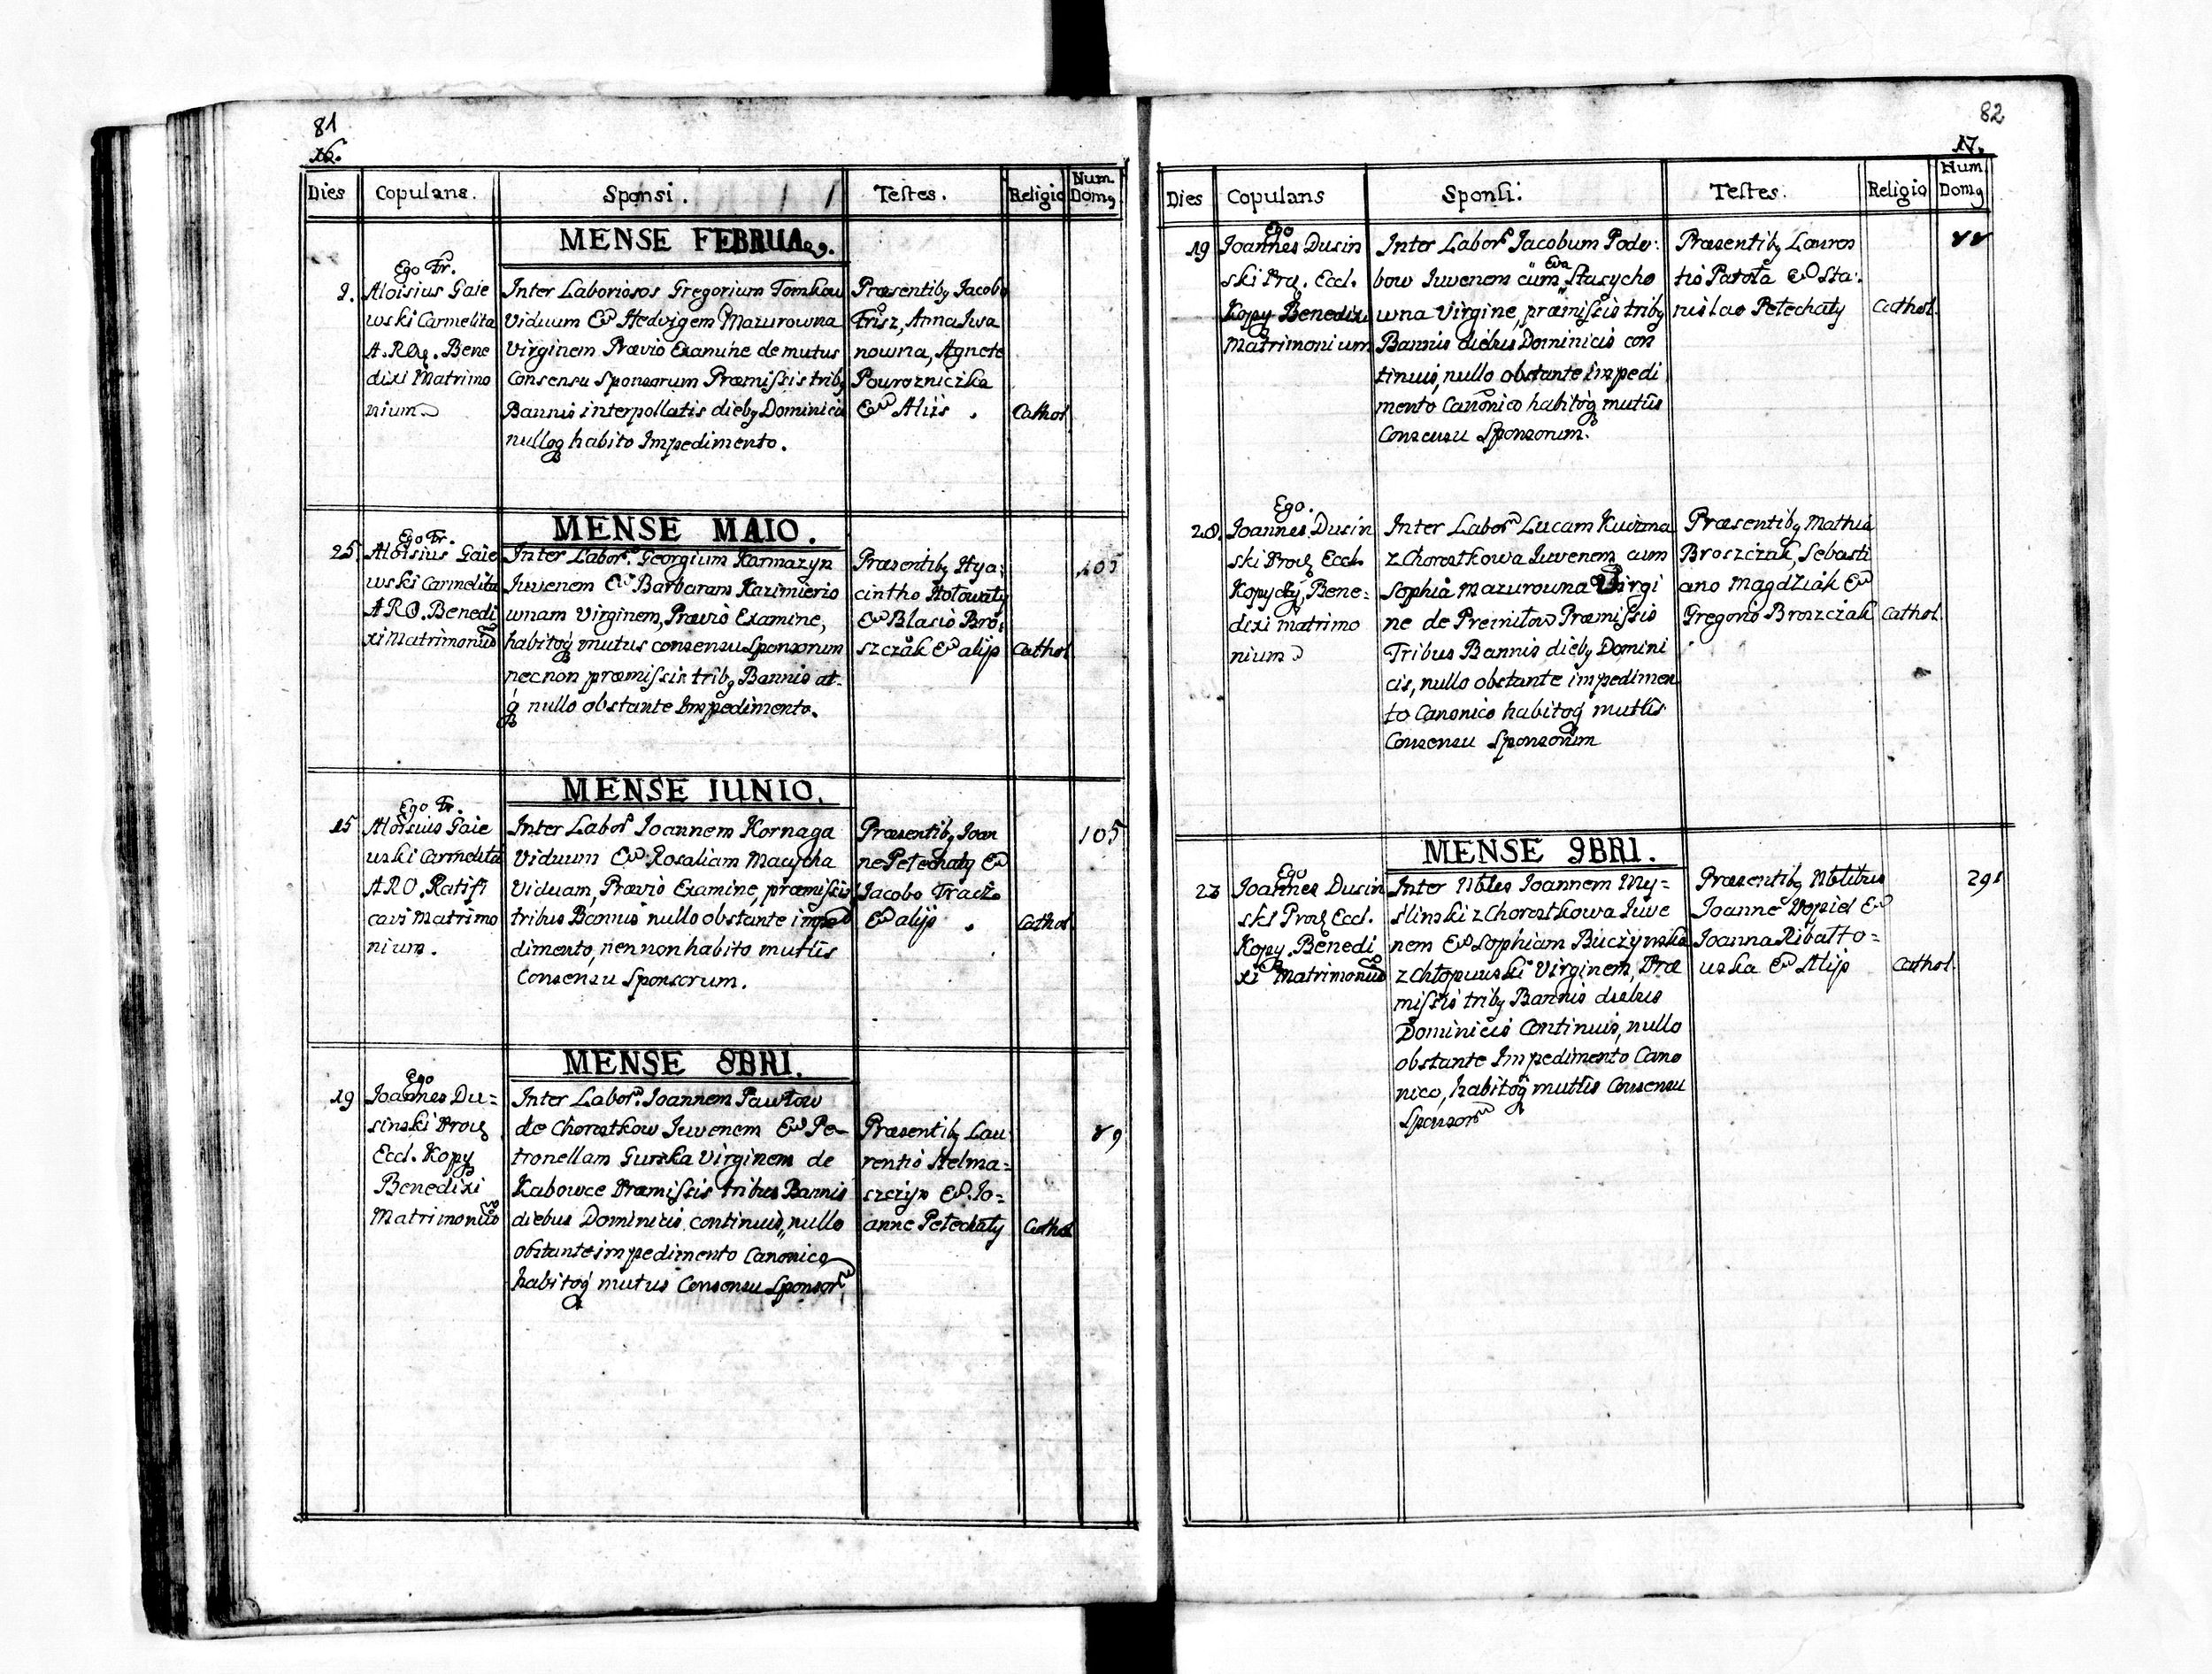 81
16.
Dies Copulans. Sponsi. Testes. Religio Num. Dom9
MENSE FEBRUA
Ego Fr.
2. Aloisius Gaie
wski Carmelita
A.R.O. Bene
dixi Matrimo
nium
Inter Laboriosos Gregorium Tomkow
Viduum & Hedvigem Mazurowna
Virginem Prævio Examine de mutuo
Consensu Sponsorum Præmissis trib9
Bannis interpollatis dieb9 Dominicis
nulloq habito Impedimento.
Præsentib9 Jacobo
Frisz, Anna Iwa
nowna, Agnete
Pourozniczka
& Aliis.
Cathol.
MENSE MAIO.
Ego Fr.
25. Aloisius Gaie
wski Carmelita
ARO. Benedi
xi Matrimoniu
Inter Labor. Georgium Karmazyn
Juvenem & Barbaram Kazimierio
wnam Virginem, Prævio Examine,
habitoq mutuo consensu Sponsorum
necnon præmissis trib9 Bannis at-
q nullo obstante Impedimento.
Præsentib9 Hya:
cintho Hołowaty
& Blasio Bro:
szczak & alijs
Cathol.
105
MENSE IUNIO.
Ego Fr.
15 Aloisius Gaie
wski Carmelita
ARO. Ratifi
cavi Matrimo
nium.
Inter Labor Joannem Kornaga
Viduum & Rosaliam Macycha
Viduam, Prævio Examine, præmissis
tribus Bannis nullo obstante impe
dimento, nennon habito mutuo
Consensu Sponsorum.
Præsentib9 Joan
ne Petechaty &
Jacobo Tracz
& alijs.
Cathol.
105
MENSE 8BRI.
Ego
19 Joannes Du=
sinski
Eccl. Kopy
Benedixi
Matrimoniu
Inter Labor. Joannem Pawłow
de Chorostkow Juvenem & Pe-
tronellam Gurska Virginem de
Kabowce Præmissis tribus Bannis
diebus Dominicis continuis, nullo
obstante impedimento Canonico
habitoq mutuo Consensu Sponsor
Præsentib9 Lau
rentio Stelma=
szczyn & Jo=
anne Petechaty
Cathol
89
82
17.
Dies Copulans Sponsi. Testes. Religio Num. Dom9
Ego
19 Joannes Dusin
ski Eccl.
Kopy Benedixi
Matrimonium
Inter Labor Jacobum Podo:
bow Juvenem cum Eva Stasycho
wna Virgine, præmissis trib9
Bannis diebus Dominicis con
tinuis, nullo obstante Impedi
mento Canonico habitoq mutuo
Consensu Sponsorum.
Præsentib9 Lauren
tio Patoła & Sta:
nislao Petechaty
Cathol.
88
Ego.
28. Joannes Dusin
ski Eccl.
Kopycy, Bene=
dixi matrimo
nium
Inter Labor Lucam Kuzma
z Chorostkowa Juvenem cum
Sophia Mazurowna Virgi
ne de Præmissis
Tribus Bannis dieb9 Domini
cis, nullo obstante impedimen
to Canonico habitoq mutuo
Consensu Sponsorum
Præsentib9 Mathia
Broszczak, Sebasti
ano Magdziak &
Gregorio Broszczak
Cathol.
MENSE 9BRI.
Ego
23 Joannes Dusin
ski Eccl.
Kopy. Benedi
xi Matrimoniu
Inter Nbles Joannem My=
slinski z Chorostkowa Juve
nem & Sophiam Buczynska
Virginem, Præ
missis trib9 Bannis diebus
Dominicis Continuis, nullo
obstante Impedimento Cano
nico, habitoq mutuo Consensu
Sponsor
Præsentib9 Nblibus
Joanne Wopiel &
Joanna Ribatto=
wska & Alijs
Cathol.
291